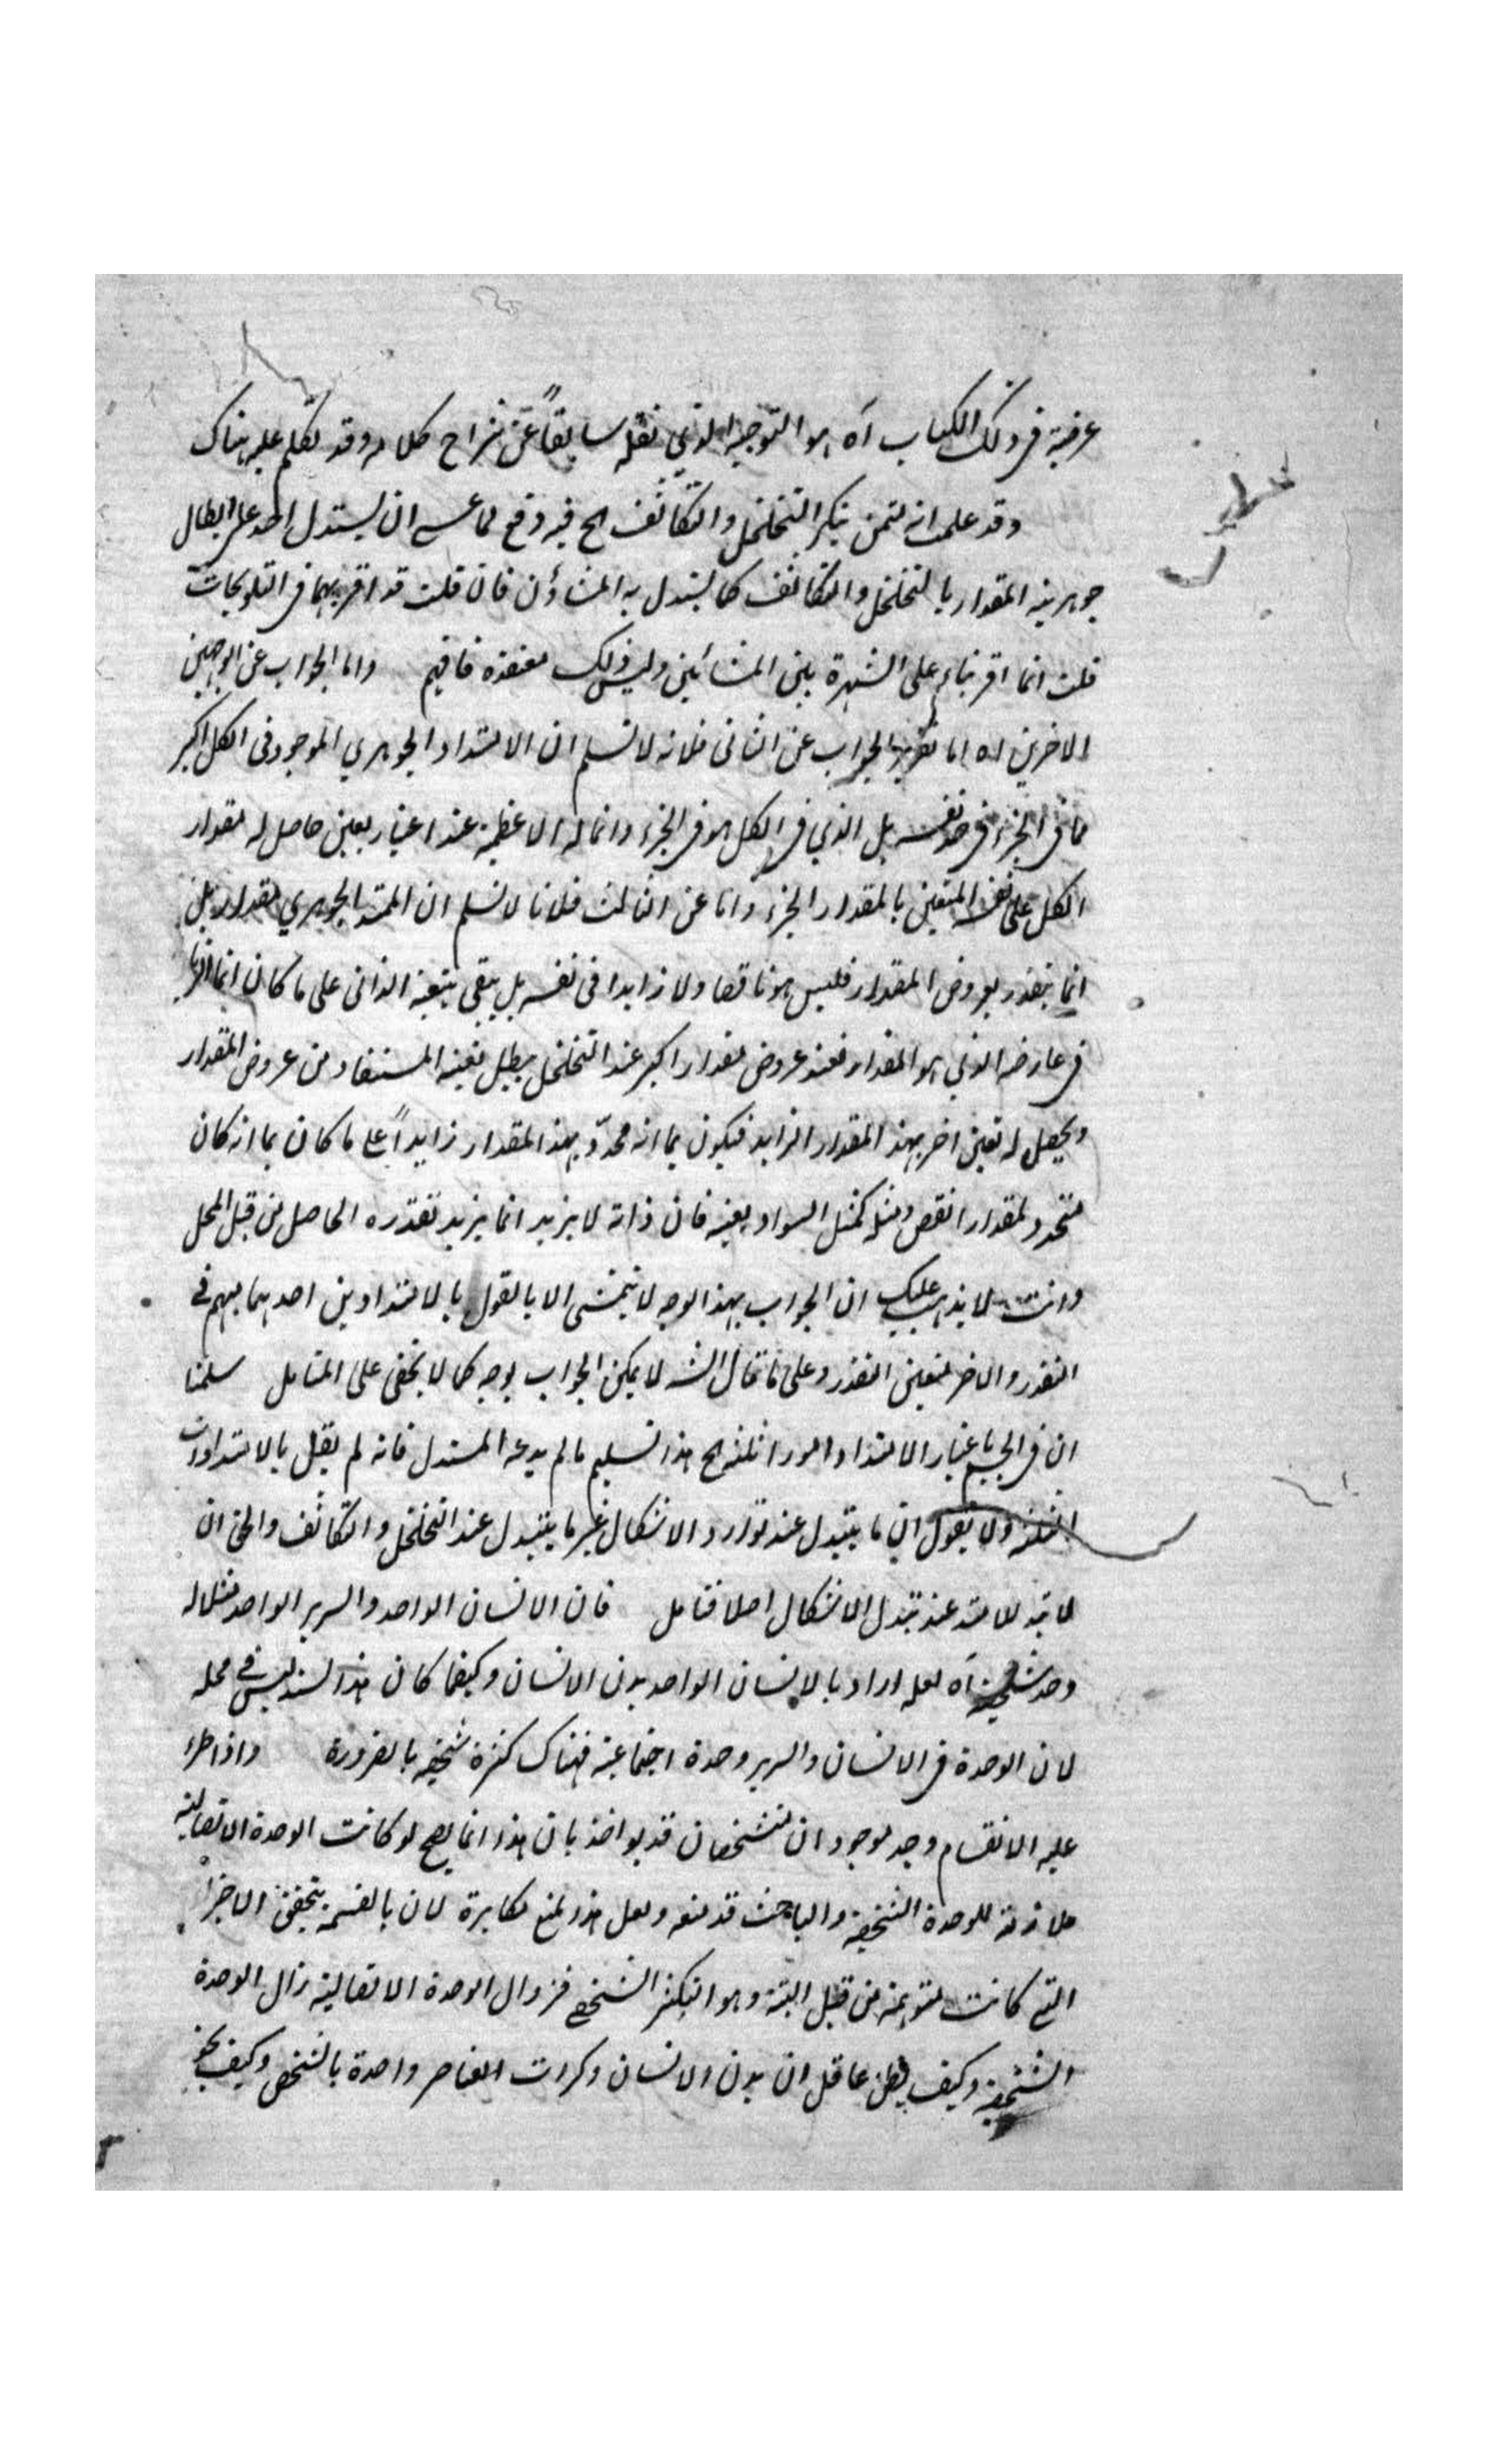 عرضية فى ذلك الكتاب آه هو التوجيه الذي نقله سابقاً عن شراح كلامه وقد تكلم عليه هناك
وقد علمت انه ممن ينكر التخلخل والتكاثف الخ فيه دفع لما عسى ان يستدل احد على ابطال
جوهرية المقدار بالتخلخل والتكاثف كما يستدل به المشاؤن فان قلت قد اقر بهما فى التلويحات
قلت انما اقر بناء على الشهرة بين المشائين وليس ذلك معتقده فافهم واما الجواب عن الوجهين
الاخرين اه اما تقرير الجواب عن الثانى فلانه لا نسلم ان الامتداد الجوهري الموجود فى الكل اكبر
مما فى الجزء فى حد نفسه بل الذي فى الكل هو فى الجزء وانما له الاعظمية عند اعتبار تعين حاصل له مقدار
الكل على نفسه المتعين بالمقدار الجزء واما عن الثالث فلانا لا نسلم ان الممتد الجوهري مقدار بل
انما يتقدر بعروض المقدار فليس هو ناقصا ولا زايدا فى نفسه بل يبقى بتعينه الذاتى على ما كان انما
فى عارضه الذي هو المقدار فعند عروض مقدار اكبر عند التخلخل يبطل تعينه المستفاد من عروض المقدار
ويحصل له تعين اخر بهذا المقدار الزايد فيكون بما انه محدد بهذا المقدار زايداً على ما كان بما انه كان
متحدد بمقدار انقص ومثله كمثل السواد بعينه فان ذاته لا يزيد انما يزيد تقدره الحاصل من قبل المحل
وانت لا يذهب عليك ان الجواب بهذا الوجه لا يتمشى الا بالقول بالامتدادين احدهما مبهم فى
التقدر والاخر متعين التقدر وعلى ما قال الشه لا يمكن الجواب بوجه كما لا يخفى على المتامل سلمنا
ان فى الجسم باعتبار الامتداد امورا ثلثة الخ هذا تسليم ما لم يدعه المستدل فانه لم يقل بالامتدادات
الثلثة ولا يقول ان ما يتبدل عند توارد الاشكال غير ما يتبدل عند التخلخل والتكاثف والحق ان
لا تبدل لامتد عند تبدل الاشكال اصلا فتامل فان الانسان الواحد والسرير الواحد مثلا له
وحدة شخصية آه لعله اراد بالانسان الواحد بدن الانسان وكيفما كان هذا السند ليس فى محله
لان الوحدة فى الانسان والسرير وحدة اجتماعية فهناك كثرة شخصية بالضرورة واذا طرء
عليه الانقسام وجد موجودان متشخصان قد يواخذ بان هذا انما يصح لو كانت الوحدة الاتصالية
ملازمة للوحدة الشخصية والباحث قد منعه ولعل هذا المنع مكابرة لان بالقسمة يتحقق الاجزاء
التى كانت متوهمة من قبل البتة وهو التكثر الشخصى فزوال الوحدة الاتصالية زال الوحدة
الشخصية وكيف يظن عاقل ان بدن الانسان وكرات العناصر واحدة بالشخص وكيف